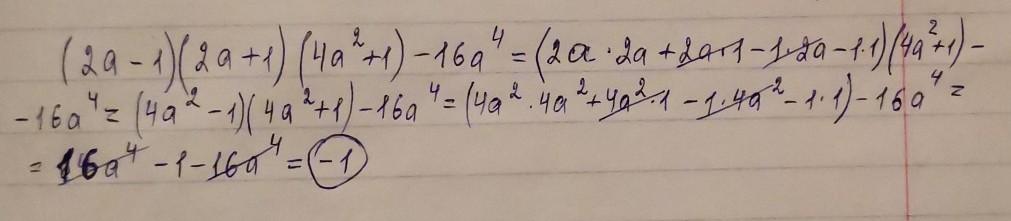 (2a-1)(2a+1)(4a²+1)-16a⁴=(2a·2a+2a·1-1·2a-1·1)(4a²+1)-
-16a⁴=(4a²-1)(4a²+1)-16a⁴=(4a²·4a²+4a²·1-1·4a²-1·1)-16a⁴=
=16a⁴-1-16a⁴=-1